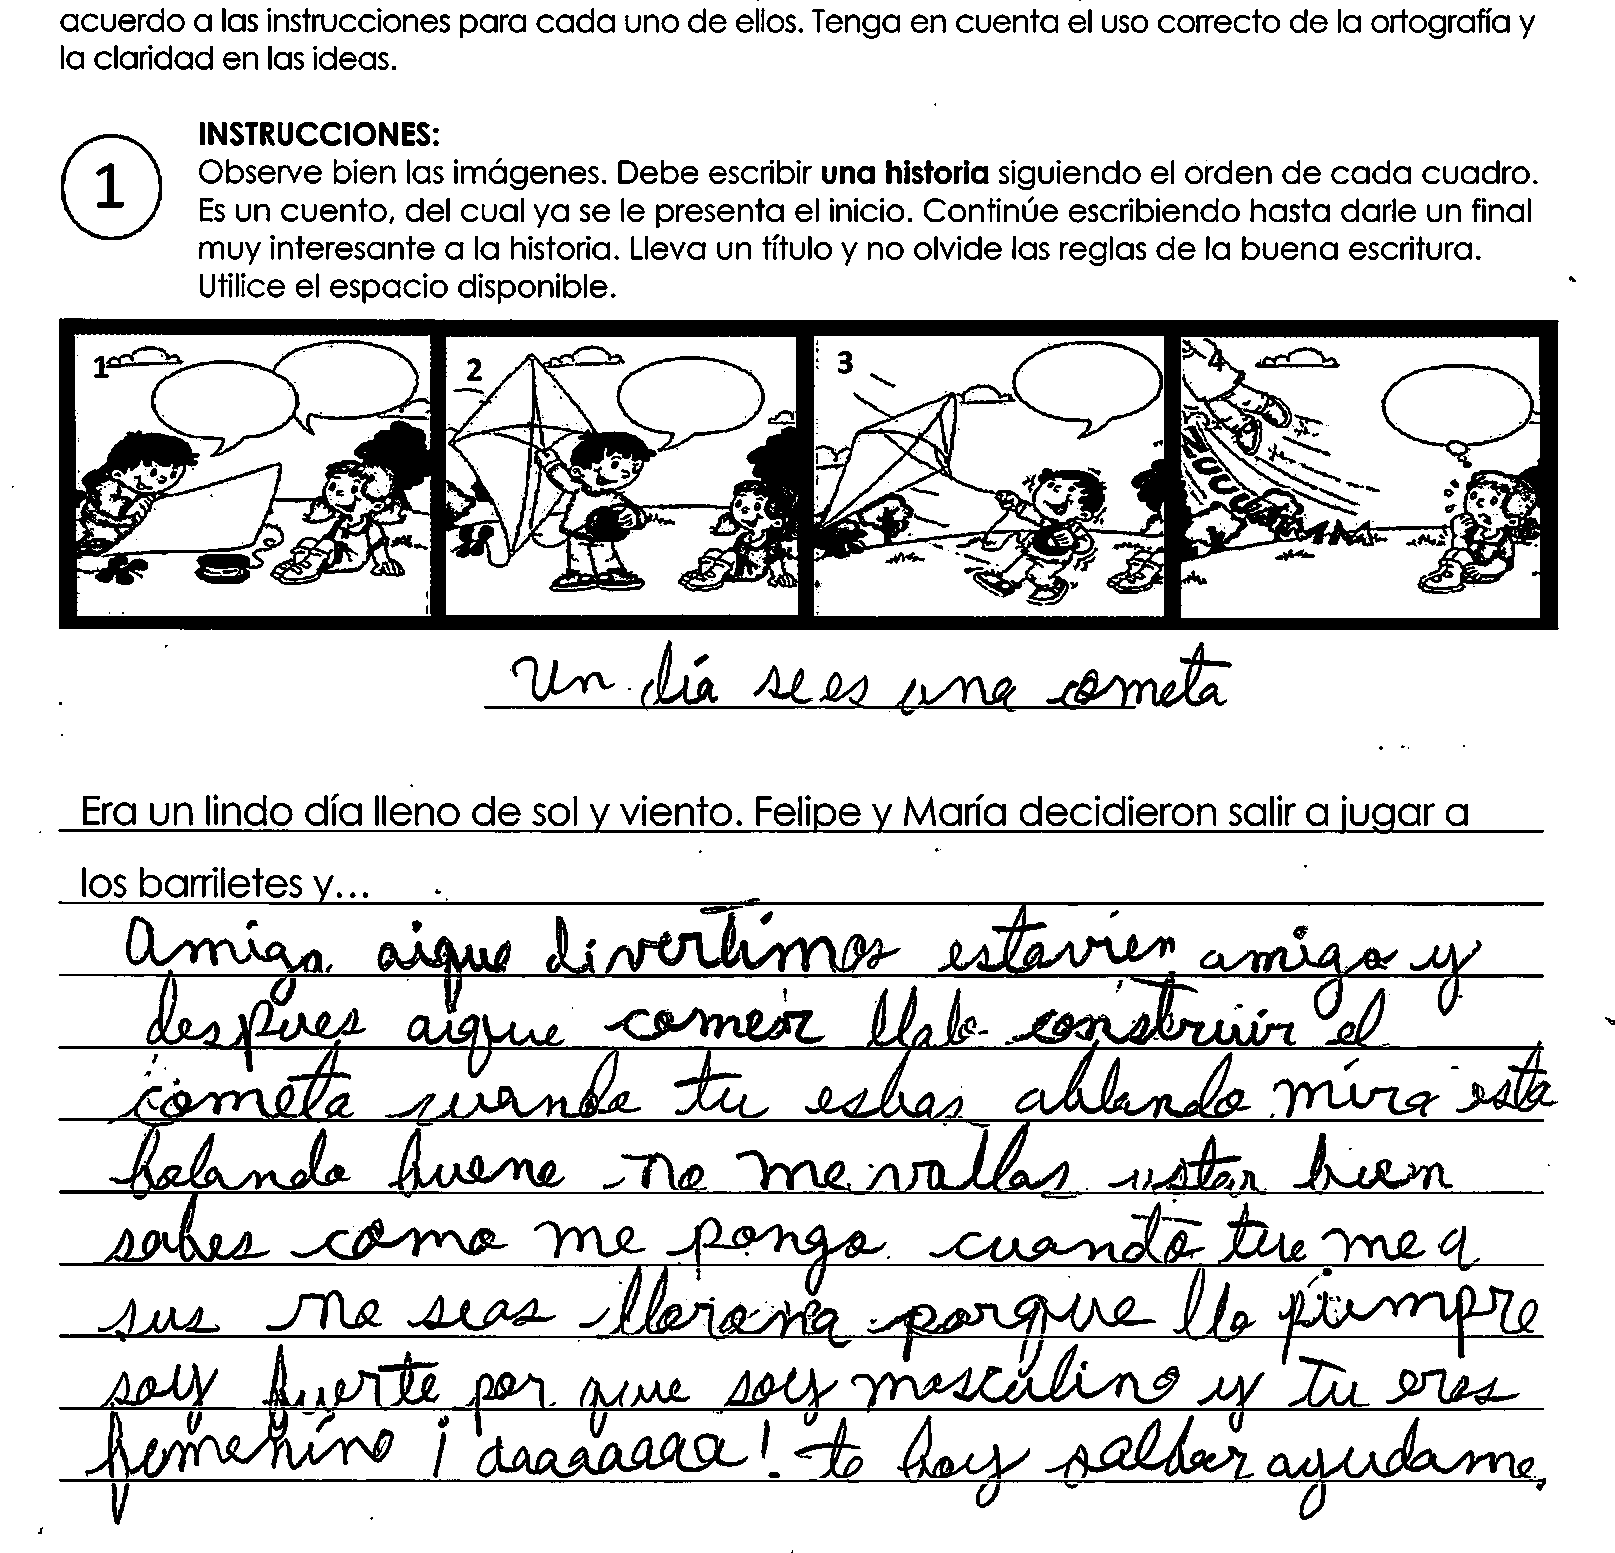 acuerdo a las instrucciones para cada uno de ellos. Tenga en cuenta el uso correcto de la ortografía y
la claridad en las ideas.
1
INSTRUCCIONES:
Observe bien las imágenes. Debe escribir una historia siguiendo el orden de cada cuadro.
Es un cuento, del cual ya se le presenta el inicio. Continúe escribiendo hasta darle un final
muy interesante a la historia. Lleva un título y no olvide las reglas de la buena escritura.
Utilice el espacio disponible.
1 2 3 4
Un día se es una cometa
Era un lindo día lleno de sol y viento. Felipe y María decidieron salir a jugar a
los barriletes y...
Amiga aique divertimos estavien amigo y
despues aique comer llalo construir el
cometa cuando tu esbas ahlando mira esta
bolando buene no me vallas bien
sabes como me pongo cuando tue me a
sus no seas llorona porque llo piempre
soy fuerte por que soy masculino y tu eres
femenino ¡aaaaaaaa! te boy salbar ayudame,